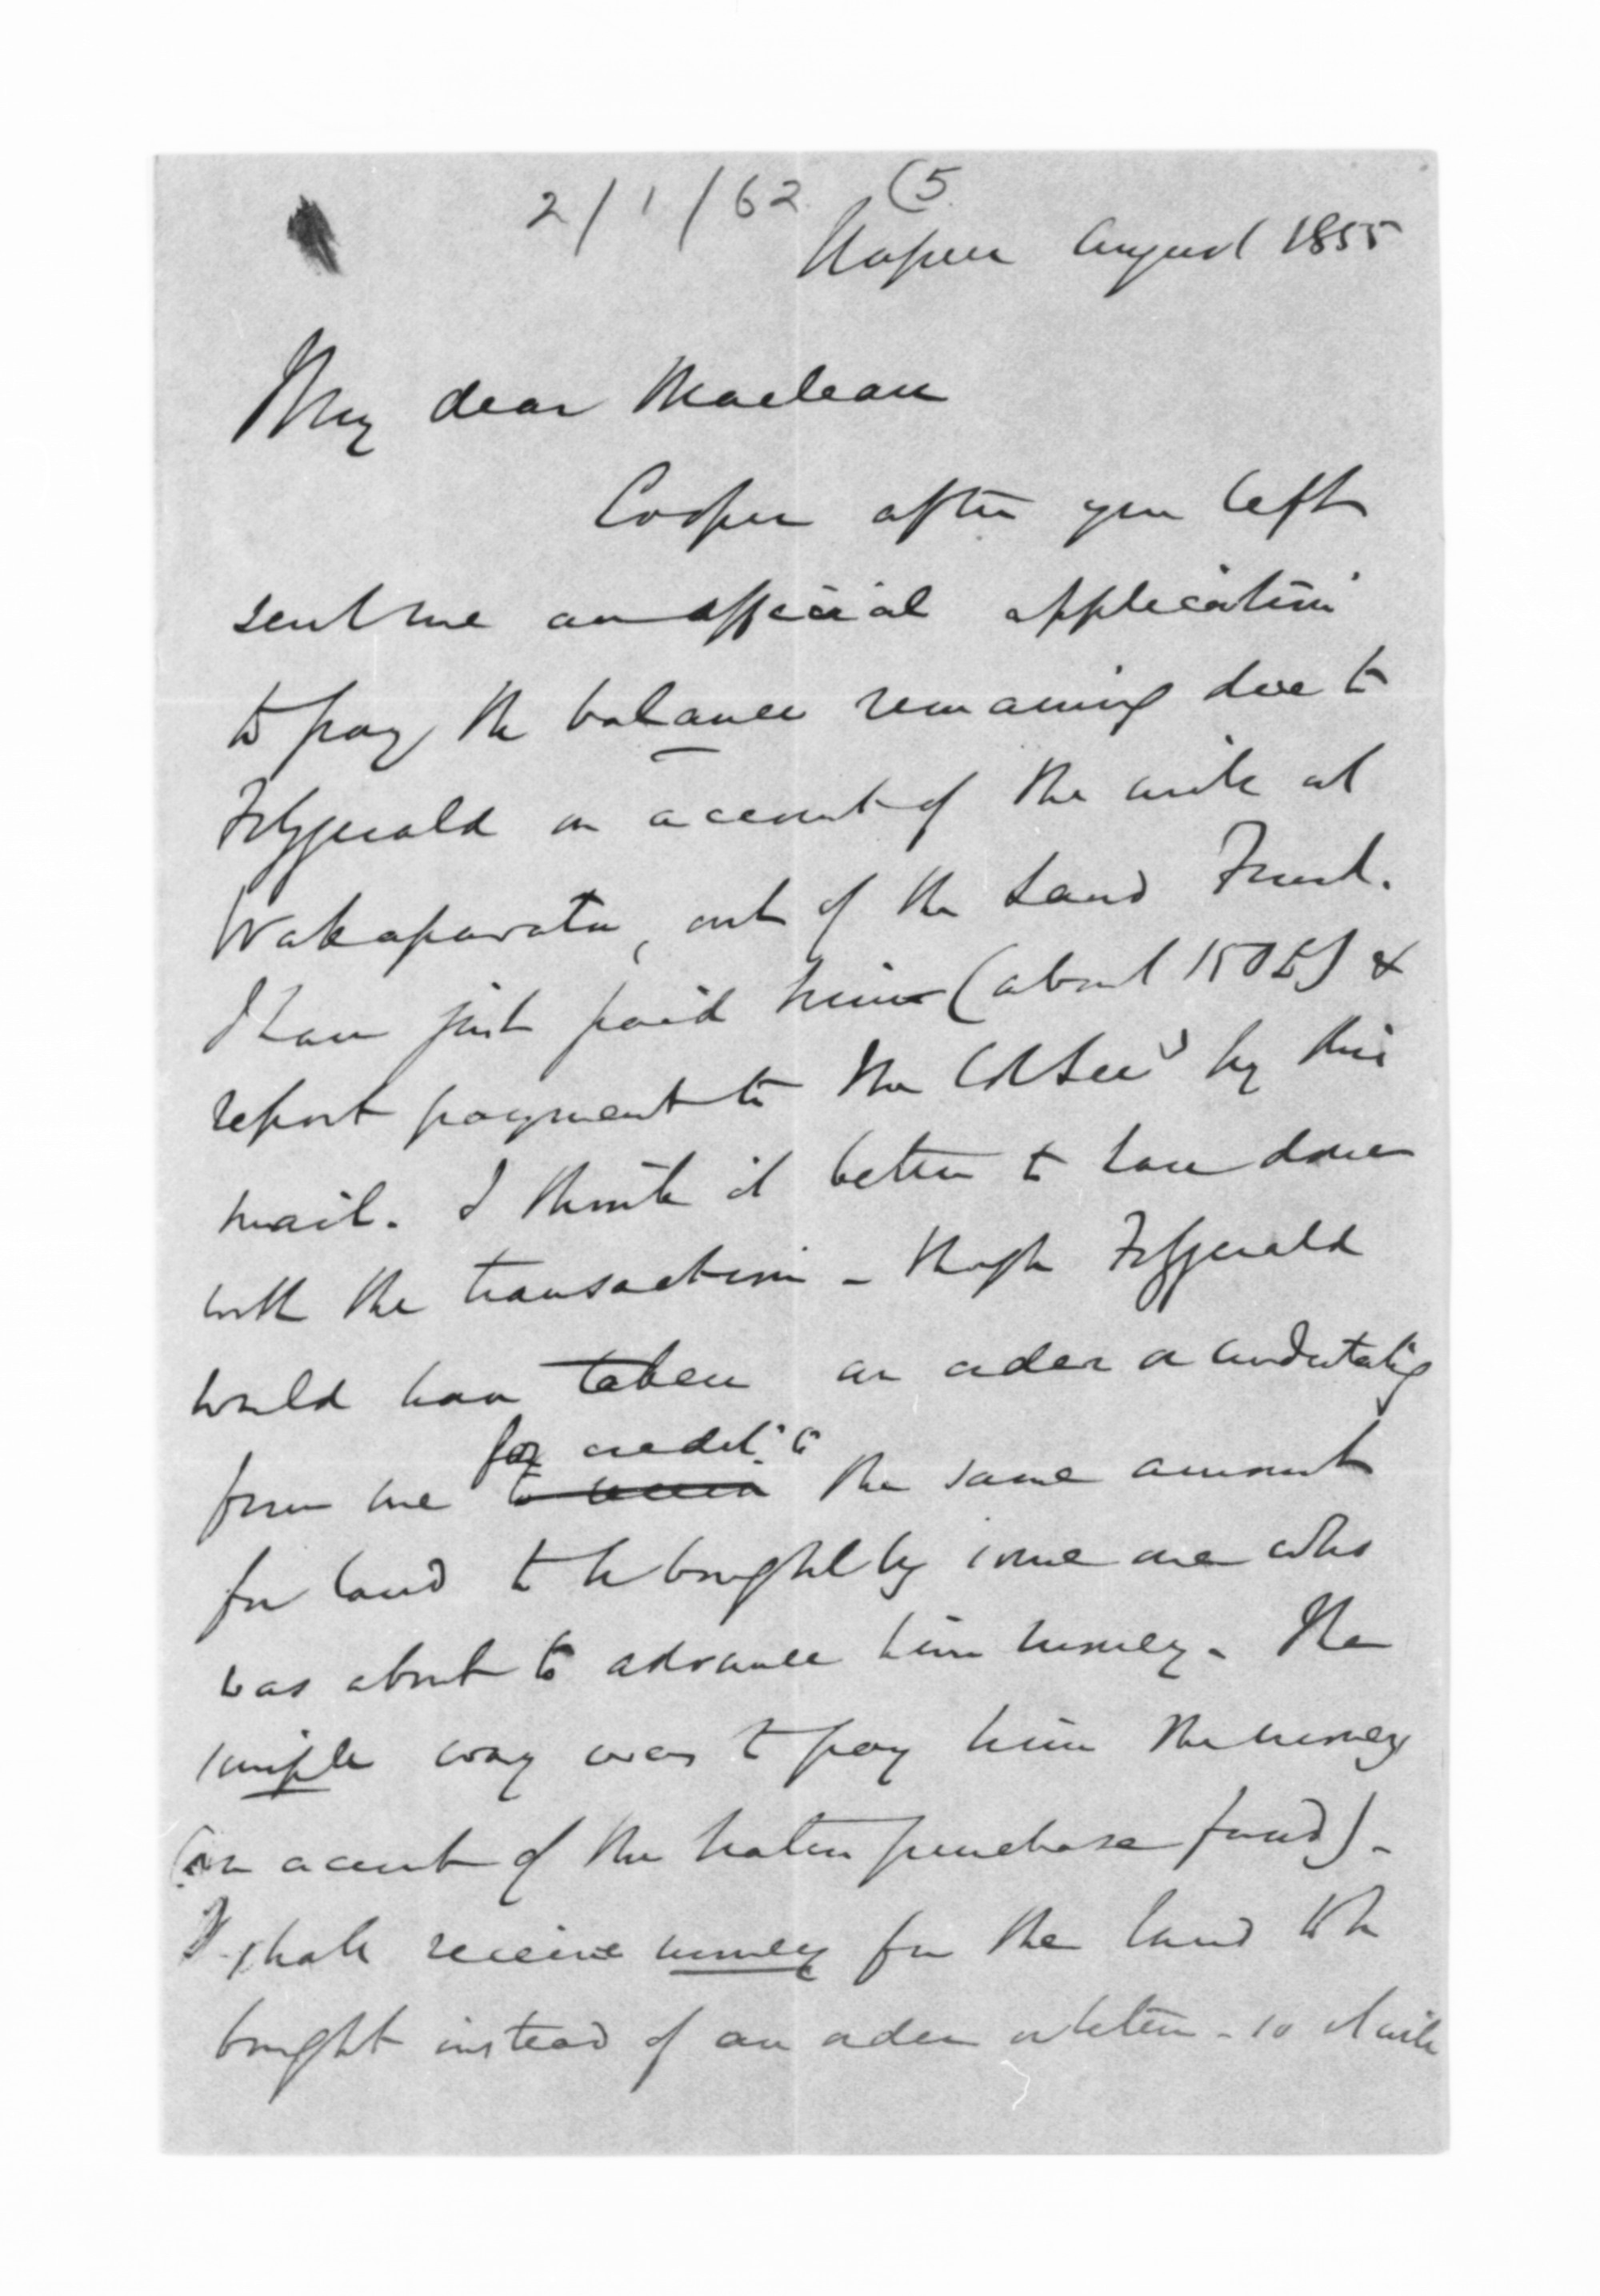 2/1/62 (5.
Napier August 1855
My dear Maclean
Cooper after you left
sent me an official application
to pay the balance remaining due to
Fitzgerald on account of the work at
Wakaparata, out of the Land Fund.
I have just paid him (about 150£) &
report payment to the by this
mail. I think it better to have done
with the transaction - though Fitzgerald
would have taken an order or undertaking
from me for credit to the same amount
for land to be bought by some one who
was about to advance him money - The
simple way was to pay him the money
(on account of the native purchase fund) -
I shall receive money for the land to be
bought instead of an order - so it will